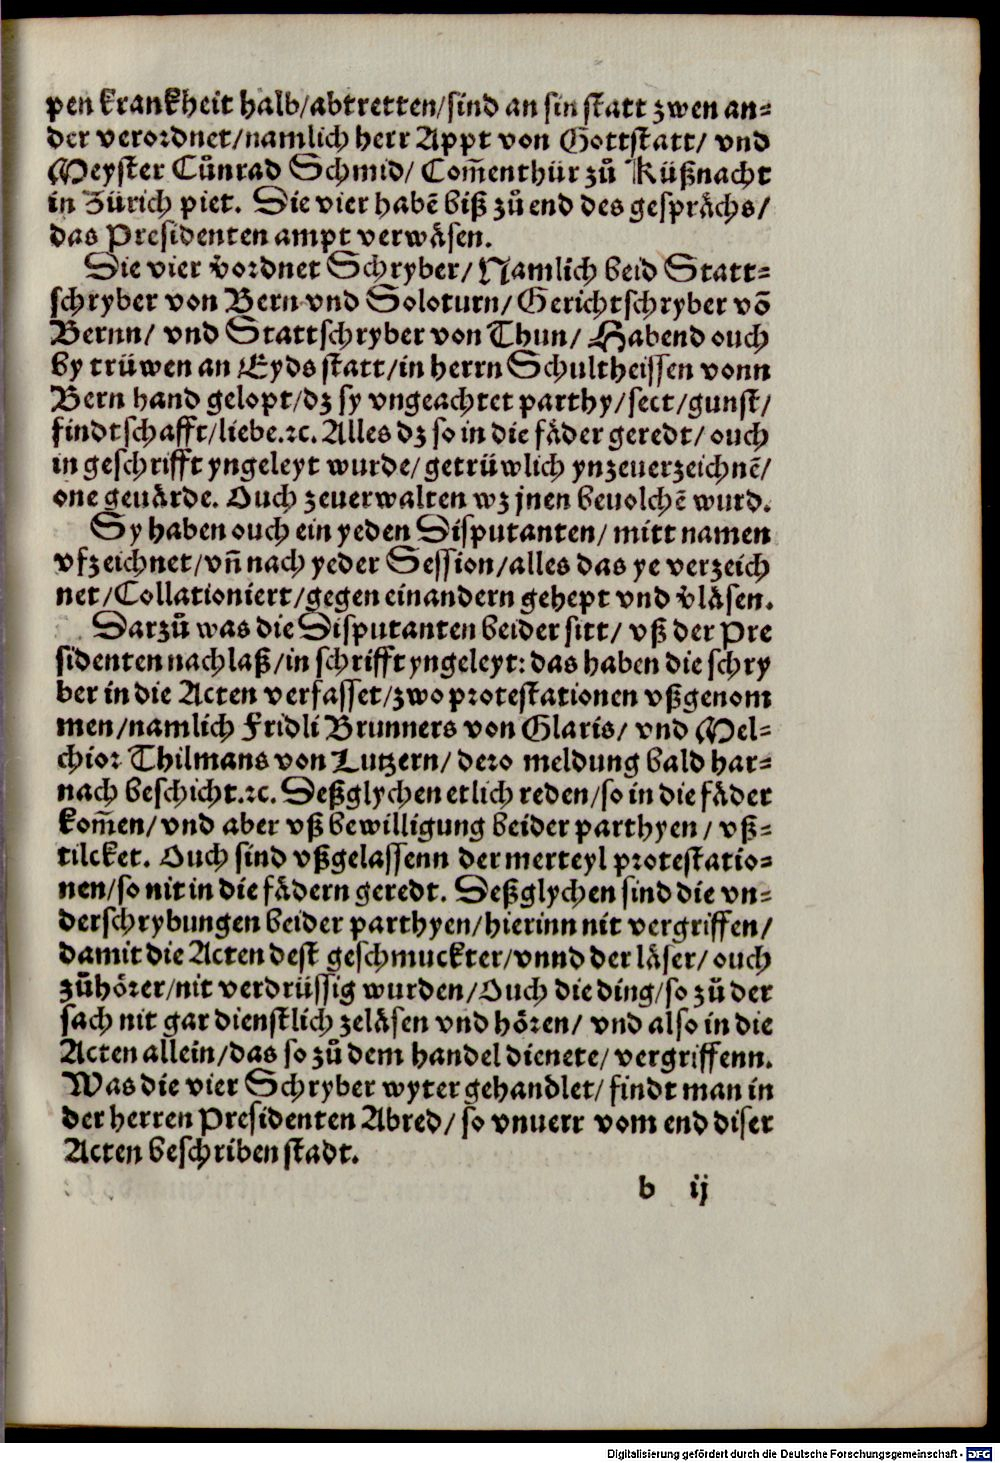 pen kranckheit halb/abtretten/sind an sin statt zwen an-
der verordnet/namlich herr Appt von Gottstatt/ vnd
Meyster Cůnrad Schmid/ Com̃enthür zů Küßnacht
in Zürich piet. Die vier habẽ biß zů end des gesprächs/
das Presidenten ampt verwäsen.
Die vier v̈ordnet Schryber/ Namlich beid Statt-
schryber von Bern vnd Soloturn/ Gerichtschryber võ
Bernn/ vnd Stattschryber von Thun/ Habend ouch
by trüwen an Eyds statt/in herrn Schultheissen vonn
Bern hand gelopt/dz sy vngeachtet parthy/sect/gunst/
findtschafft/liebe.ꝛc. Alles dz so in die fäder geredt/ ouch
in geschrifft yngeleyt wurde/getrüwlich ynzeuerzeichnẽ/
one geuärde. Ouch zeuerwalten wz jnen beuolchẽ wurd.
Sy haben ouch ein yeden Disputanten/ mitt namen
vfzeichnet/vñ nach yeder Session/alles das ye verzeich
net/Collationiert/gegen einandern gehept vnd v̈läsen.
Darzů was die Disputanten beider sitt/ vß der Pre
sidenten nachlaß/in schrifft yngeleyt: das haben die schry
ber in die Acten verfasset/zwo protestationen vßgenom
men/namlich Fridli Brunners von Glaris/ vnd Mel-
chior Thilmans von Lutzern/ dero meldung bald har-
nach beschicht.ꝛc. Deßglychen etlich reden/so in die fäder
kom̃en/ vnd aber vß bewilligung beider parthyen/ vß-
tilcket. Ouch sind vßgelassenn der merteyl protestatio-
nen/so nit in die fädern geredt. Deßglychen sind die vn-
derschrybungen beider parthyen/hierinn nit vergriffen/
damit die Acten dest geschmuckter/vnnd der läser/ ouch
zůhörer/nit verdrüssig wurden/Ouch die ding/so zů der
sach nit gar dienstlich zeläsen vnd hören/ vnd also in die
Acten allein/das so zů dem handel dienete/ vergriffenn.
Was die vier Schryber wyter gehandlet/ findt man in
der herren Presidenten Abred/ so vnuerr vom end diser
Acten beschriben stadt.
b ij
Digitalisierung gefördert durch die Deutsche Forschungsgemeinschaft - DFG